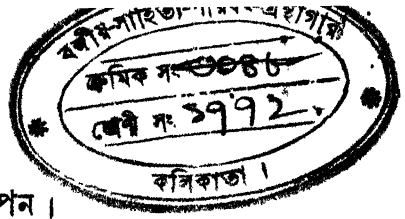 বঙ্গীয়-সাহিত্য-পরিষৎ-গ্রন্থাগার
ক্রমিক সং
শ্রেণী সং ১৭৭২.
কলিকাতা ।
পন ।